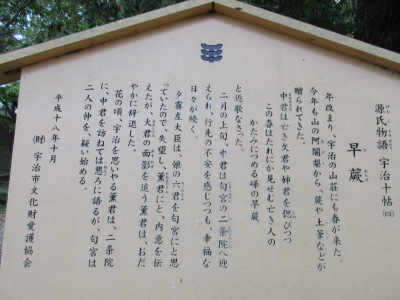 源氏物語 宇治十帖(四)
早蕨
年改まり、宇治の山荘にも春が来た。
今年も山の阿闍梨から、蕨や土筆などが
贈られてきた。
中君は亡き父君や姉君を偲びつつ
この春はたれにか見せむ亡き人の
かたみにつめる峰の早蕨
と返歌なさった。
二月の上旬、中君は匂宮の二条院へ迎
えられ、行先の不安を感じつつも、幸福な
日々が続く。
夕霧左大臣は娘の六君を匂宮にと思
っていたので、失望し、薫君にと、内意を伝
えたが、大君の面影を追う薫君は、おだ
やかに辞退した。
花の頃、宇治を思いやる薫君は、二条院
に、中君を訪ねては懇ろに語るが、匂宮は
二人の仲を、疑い始める。
平成十八年十月
(財)宇治市文化財愛護協会